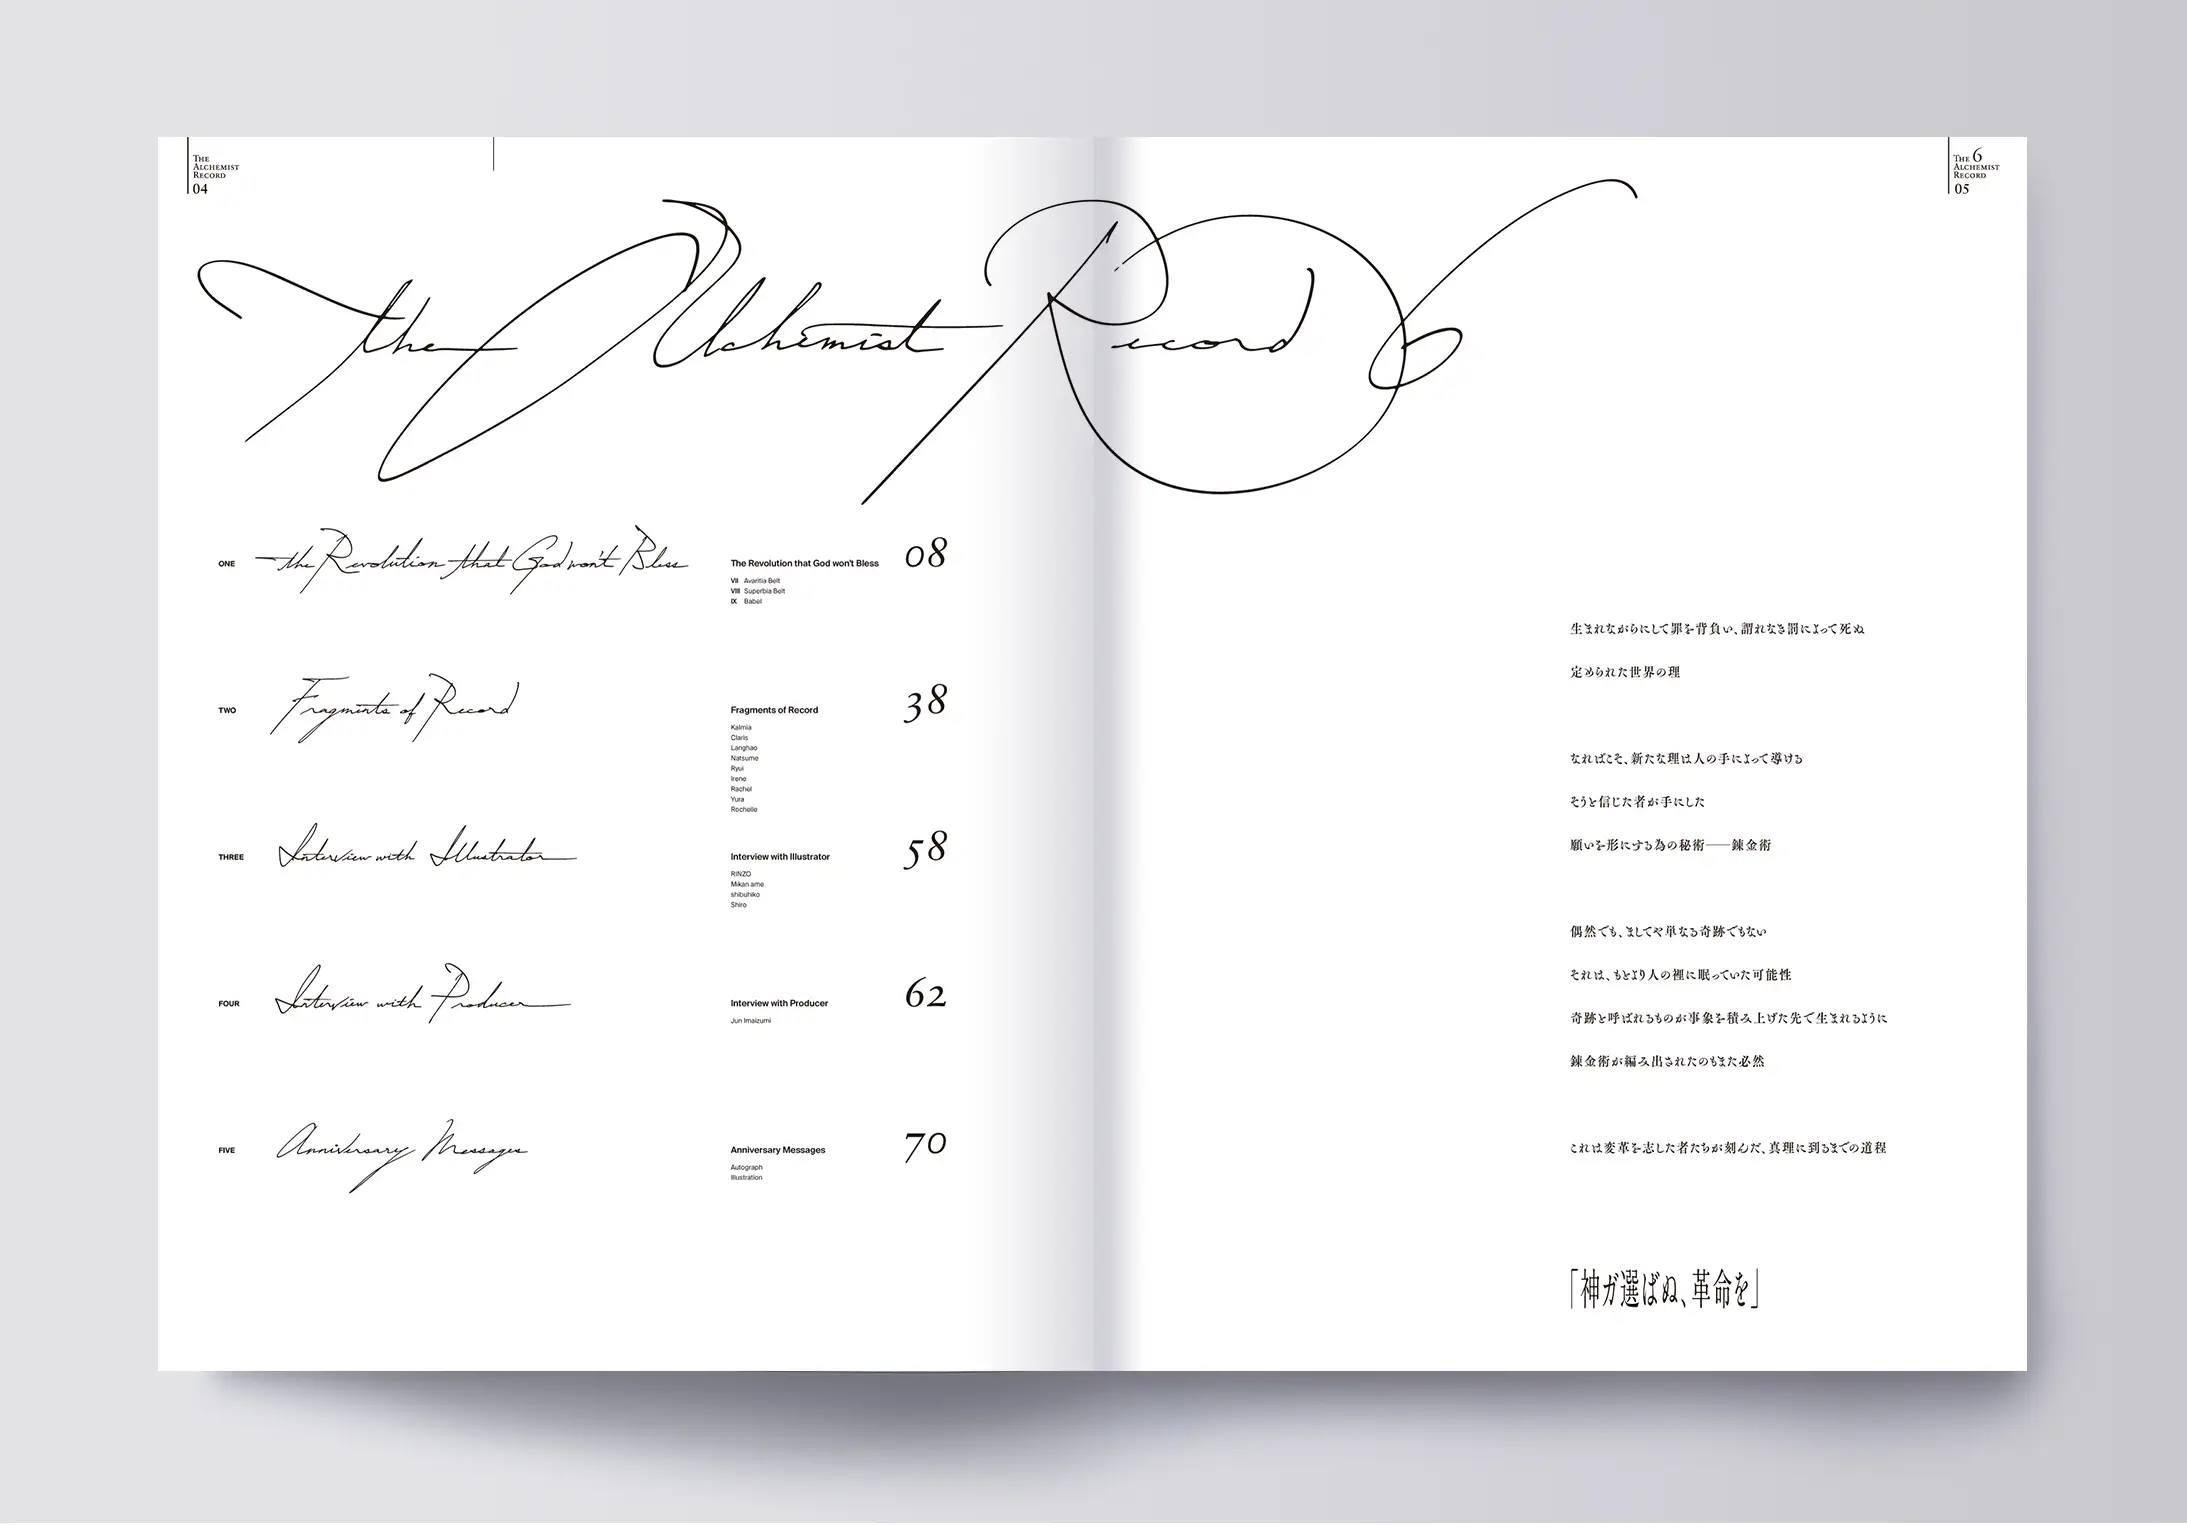 THE
ALCHEMIST
RECORD
04
THE 6
ALCHEMIST
RECORD
05
the Alchemist Record 6
ONE
the Revolution that God won't Bless
The Revolution that God won't Bless
08
VII Avaritia Belt
VIII Superbia Belt
IX Babel
TWO
Fragments of Record
Fragments of Record
38
Kalmia
Claris
Langhao
Natsume
Ryui
Irene
Rachel
Yura
Rochelle
THREE
Interview with Illustrator
Interview with Illustrator
58
RINZO
Mikan ame
shibuhiko
Shiro
FOUR
Interview with Producer
Interview with Producer
62
Jun Imaizumi
FIVE
Anniversary Messages
Anniversary Messages
70
Autograph
Illustration
生まれながらにして罪を背負い、謂れなき罰によって死ぬ
定められた世界の理
なればこそ、新たな理は人の手によって導ける
そうと信じた者が手にした
願いを形にする為の秘術──錬金術
偶然でも、ましてや単なる奇跡でもない
それは、もとより人の裡に眠っていた可能性
奇跡と呼ばれるものが事象を積み上げた先で生まれるように
錬金術が編み出されたのもまた必然
これは変革を志した者たちが刻んだ、真理に到るまでの道程
「神ガ選ばぬ、革命を」